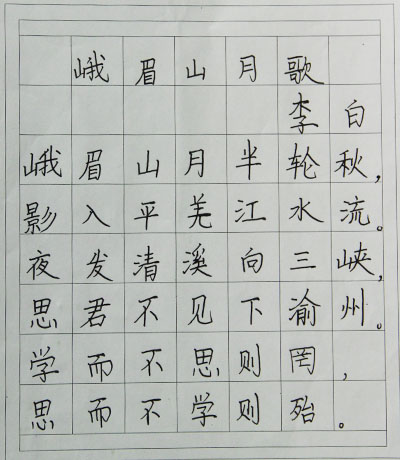 峨眉山月歌
李白
峨眉山月半轮秋，
影入平羌江水流。
夜发清溪向三峡，
思君不见下渝州。
学而不思则罔，
思而不学则殆。